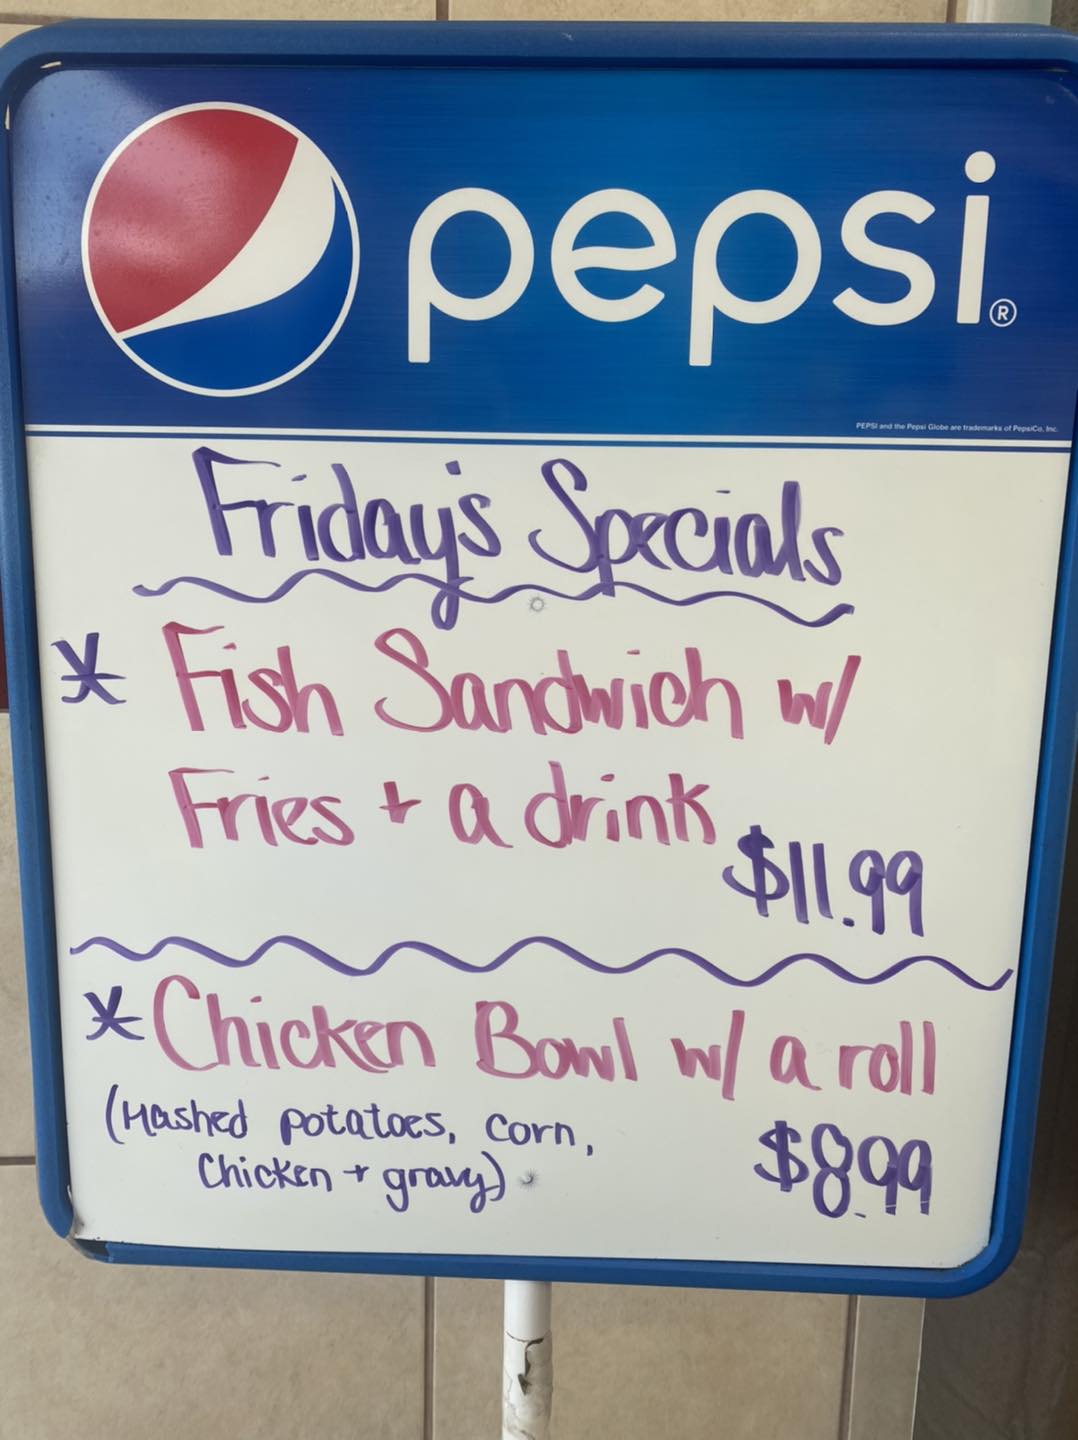 pepsi®
PEPSI and the Pepsi Globe are trademarks of PepsiCo, Inc.
Friday's Specials
* Fish Sandwich w/
Fries + a drink
$11.99
* Chicken Bowl w/ a roll
(Mashed potatoes, corn,
Chicken + gravy)
$8.99